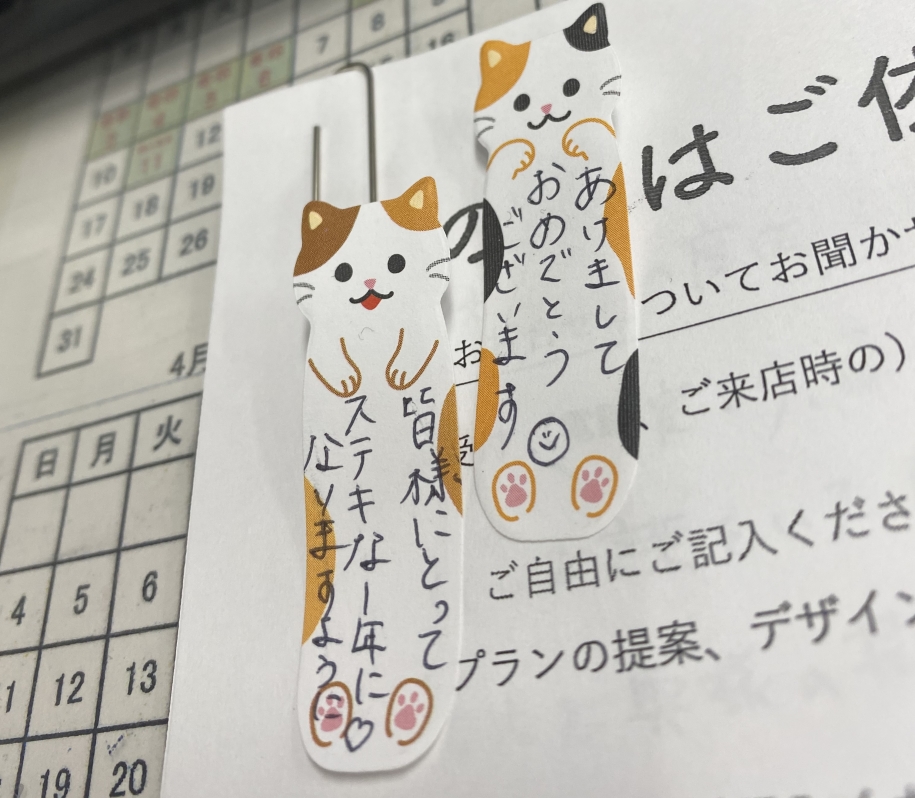 あけまして
おめでとう
ございます
皆様にとって
ステキな一年に♡
なりますように
の
はご
ついてお聞か
お
、ご来店時の）
ご自由にご記入くださ
プランの提案、デザイン
7 8
12
10 11
17 18 19
24 25 26
31
4月
日 月 火
4 5 6
12 13
19 20